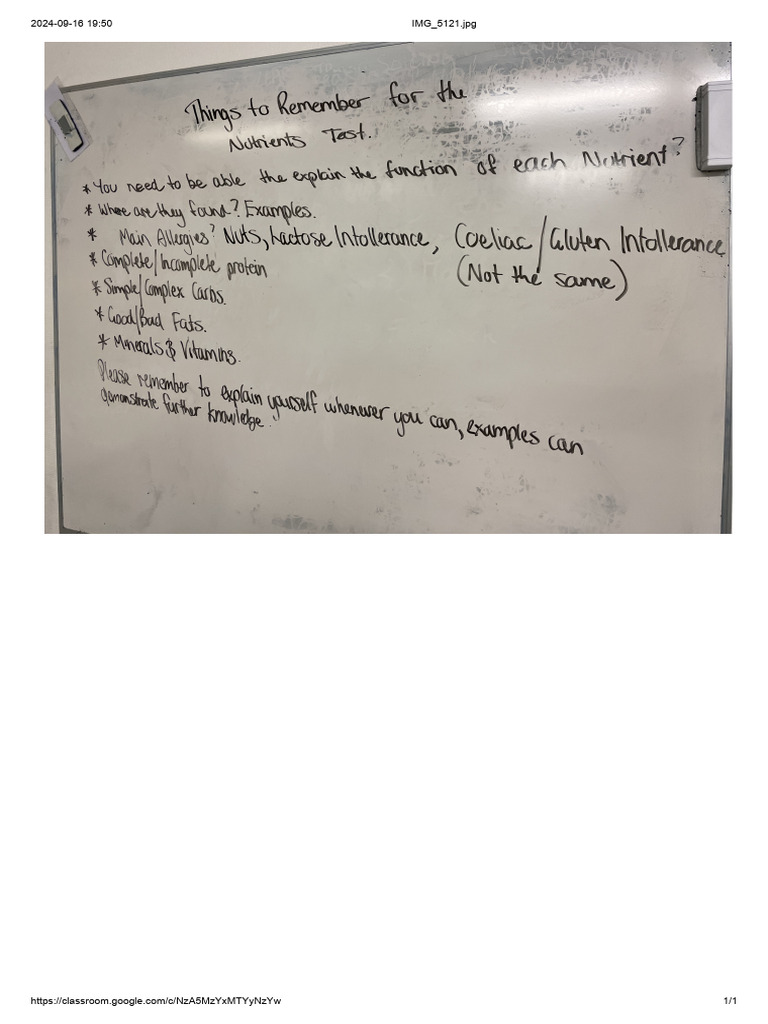 2024-09-16 19:50
IMG_5121.jpg
Things to Remember for the
Nutrients Test.
* You need to be able the explain the function of each Nutrient?
* Where are they found? Examples.
* Main Allergies? Nuts, Lactose Intollerance, Coeliac/Gluten Intollerance
(Not the same)
* Complete/Incomplete protein
* Simple/Complex Carbs.
* Good/Bad Fats.
* Minerals & Vitamins.
Please remember to explain yourself whenever you can, examples can
demonstrate further knowledge.
https://classroom.google.com/c/NzA5MzYxMTYyNzYw
1/1